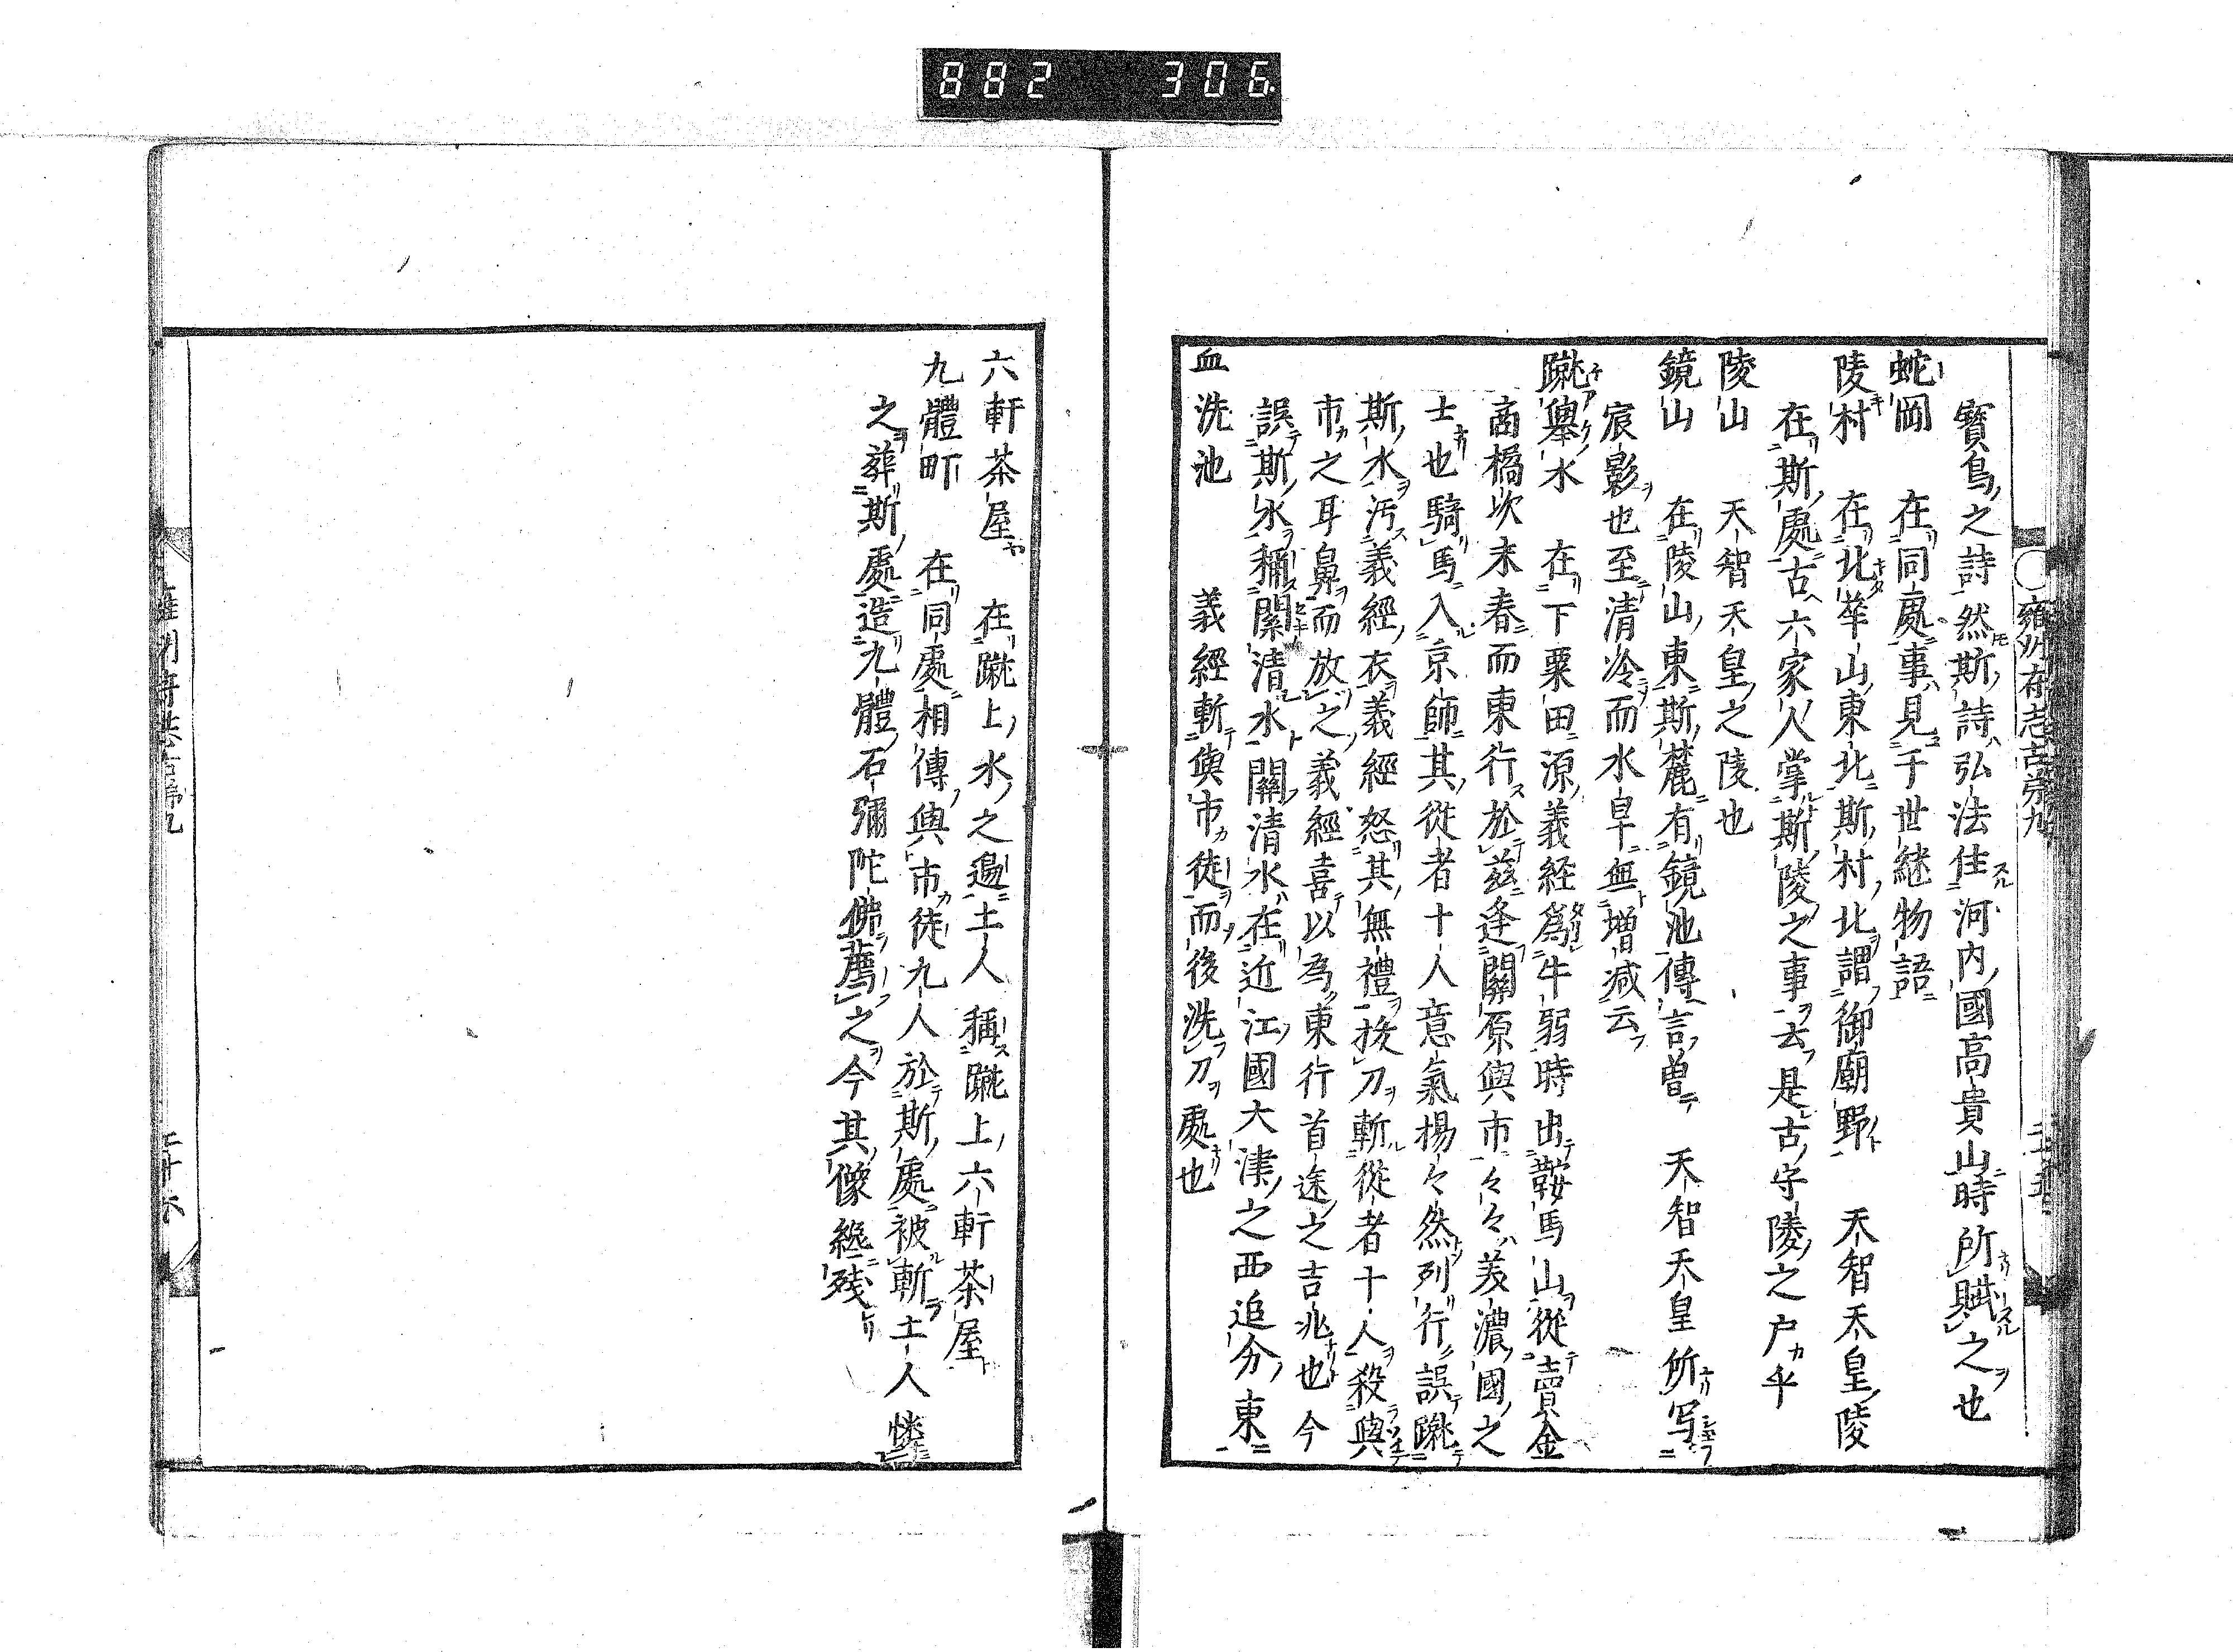 882 306
寶鳥之詩然斯詩弘法住河内國高貴山時所賦之也
蛇岡 在同處事見于世継物語
陵村 在北華山東北斯村北謂御廟野 天智天皇陵
在斯處古六家人掌斯陵之事云是古守陵之戸乎
陵山 天智天皇之陵也
鏡山 在陵山東斯麓有鏡池傳言曽 天智天皇所写
宸影也至清冷而水旱無増減云
蹴舉水 在下粟田源義経為牛弱時出鞍馬山從賣金
商橘次末春而東行於茲逢關原與市々々美濃國之
士也騎馬入京師其從者十人意氣揚々然列行誤蹴
斯水汚義經衣義經怒其無禮抜刀斬從者十人殺與
市之耳鼻而放之義經喜以為東行首途之吉兆也今
誤斯水稱關清水關清水在近江國大津之西追分東
血洗池 義經斬與市徒而後洗刀處也
六軒茶屋 在蹴上水之邊土人稱蹴上六軒茶屋
九體町 在同處相傳與市徒九人於斯處被斬土人憐
之葬斯處造九體石彌陀佛薦之今其像纔残